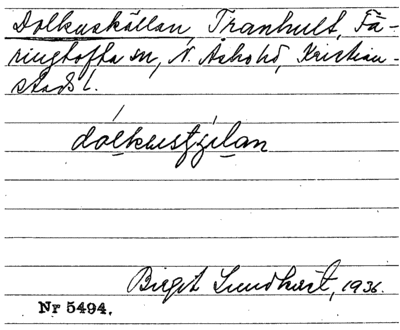 Dolkuskällan, Tranhult, Fä-
ringtofta sn, N. Åsbo hd, Kristian-
stads l.
Birgit Lundkvist, 1936.
Nr 5494.